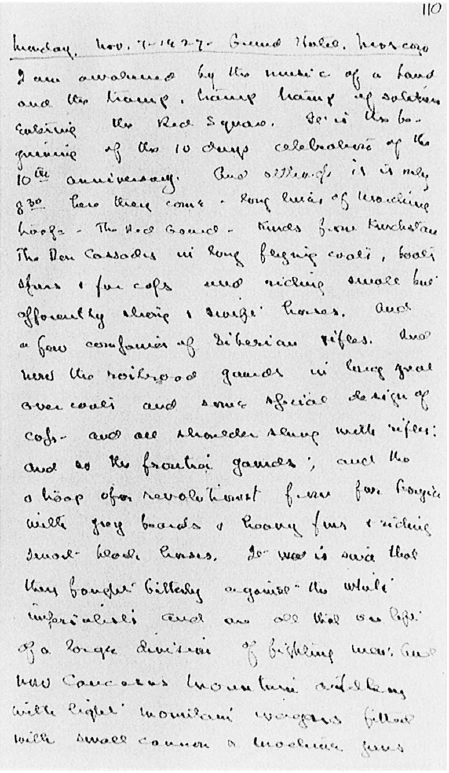 110
Monday, Nov. 7-1927- Grand Hotel. Moscow
I am awakened by the music of a band
and the tramp, tramp tramp of soldiers
entering the Red Square. It is the be-
ginning of the 10 days celebration of the
10th anniversary. And although it is only
8 30 here they come - long lines of marching
troops - The Red Guard - Kurds from Kurdistan
The Don Cossacks in long flying coats, boots
spurs & fur caps and riding small but
apparently strong & swift horses. And
a few companies of Siberian rifles. And
now the railroad guards in long great
over coats and some special design of
caps - and all shoulder slung with rifles:
and so the frontier guards; and the
a troop of revolutionist from far
with grey beards & heavy furs & riding
small black horses. It was is said that
they fought bitterly against the white
imperialists and are all that are left
of a large division of fighting men: And
now Caucasus mountain artillery
with light mountain wagons fitted
with small cannon & machine guns